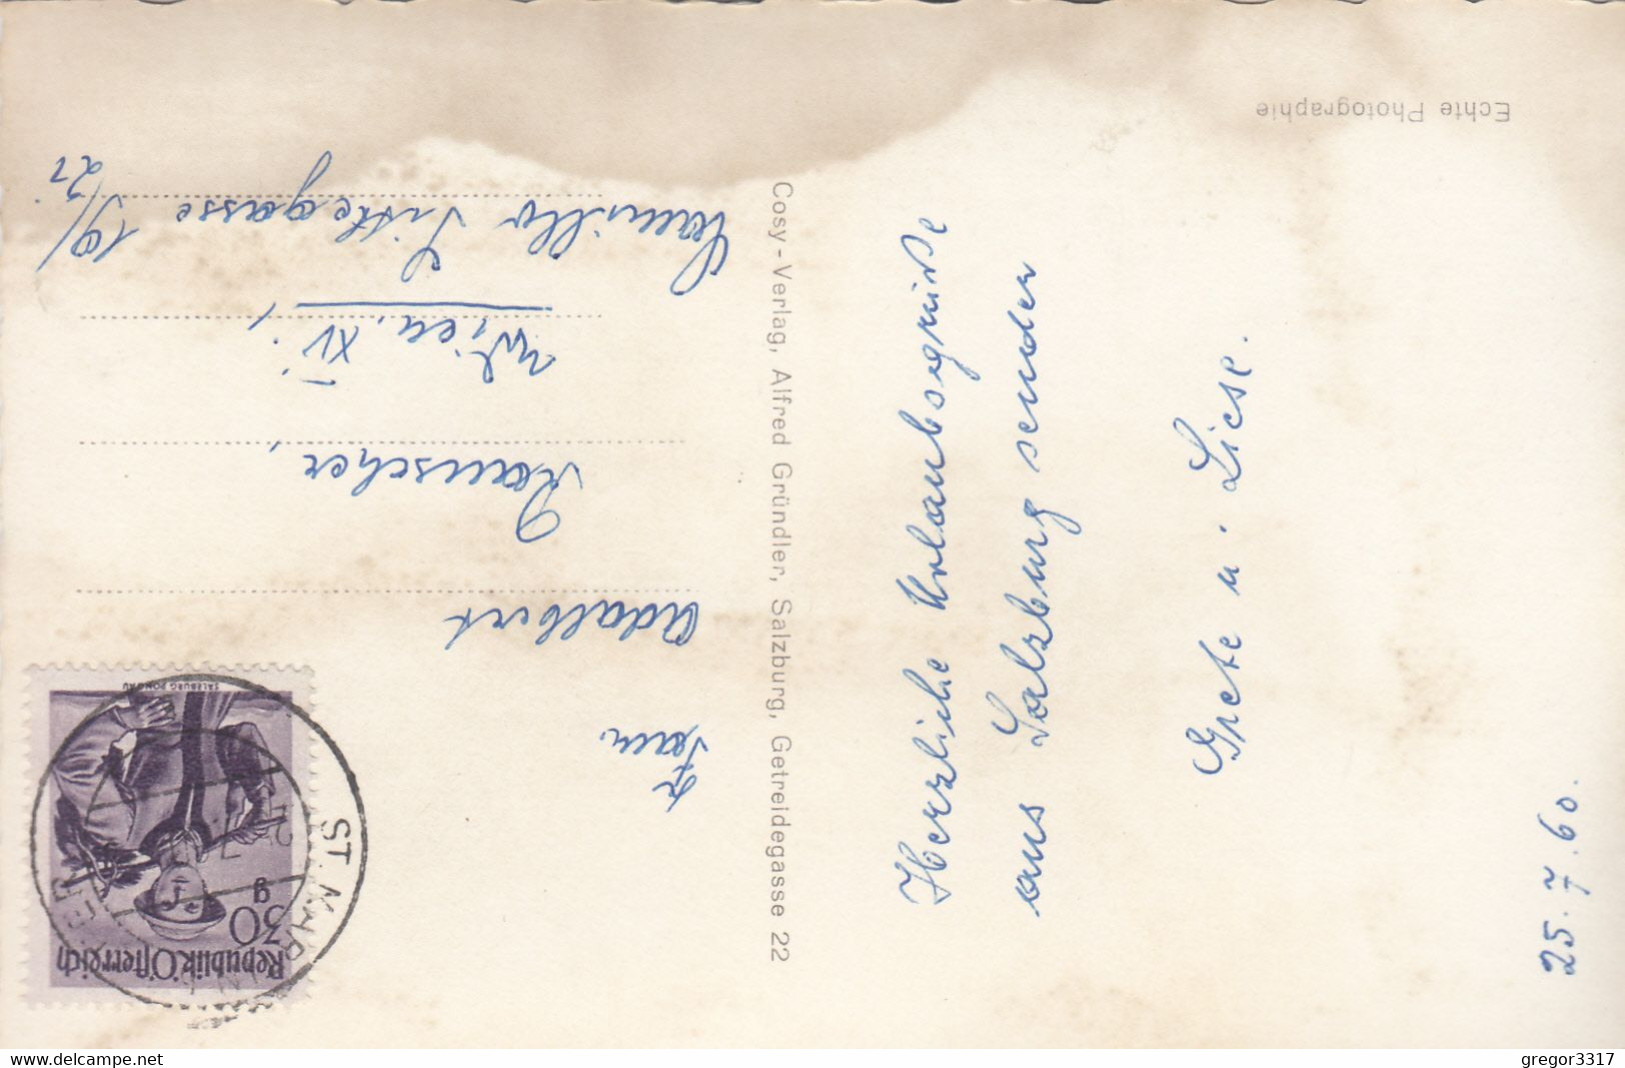 Echte Photographie
25.7.60.
Herzliche Urlaubsgrüße
aus Salzburg senden
Grete u. Liese.
Cosy-Verlag, Alfred Gründler, Salzburg, Getreidegasse 22
Republik Österreich
30
g
SALZBURG PONGAU
ST.
Fam.
Adalbert
Rauscher,
Wien. XV.,
Camillo Sittegasse 19/
21
delcampe.net
gregor3317